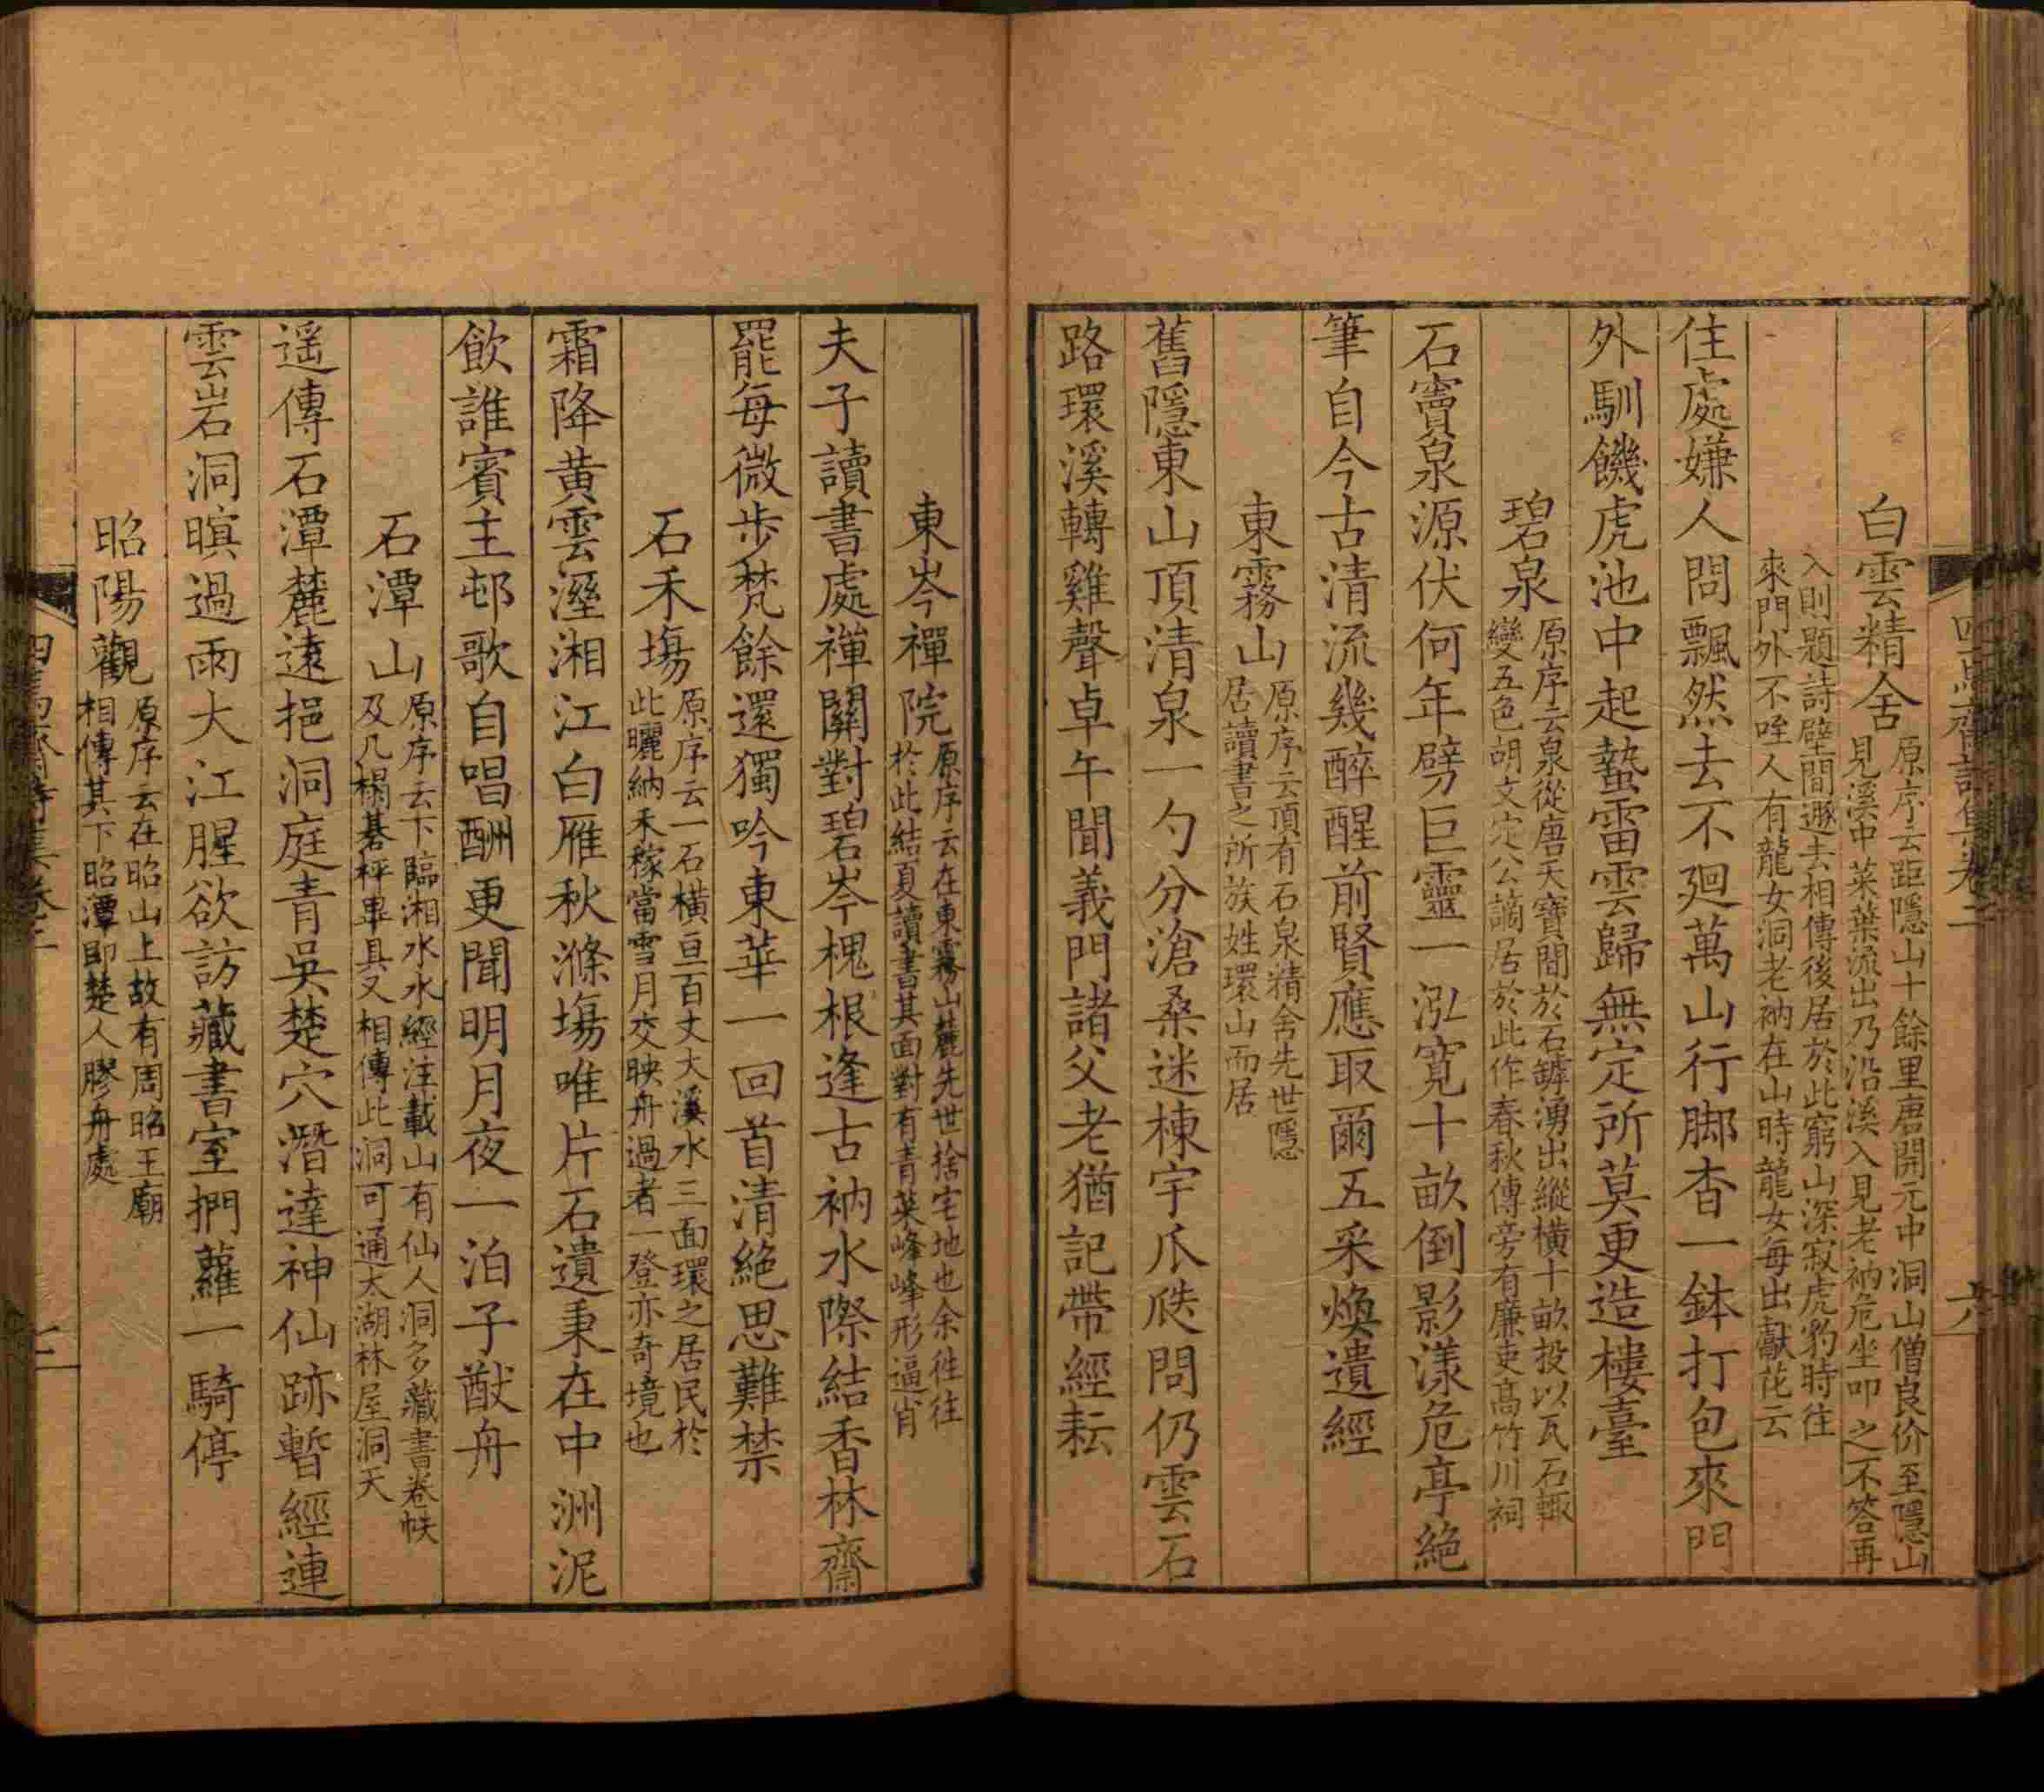 白雲精舍 原序云距隱山十餘里唐開元中洞山僧良价至隱山
見溪中菜葉流出乃沿溪入見老衲危坐叩之不答再
入則題詩壁間遯去相傳後居於此窮山深寂虎豹時往
來門外不咥人有龍女洞老衲在山時龍女每出獻花云
住處嫌人問飄然去不廻萬山行脚杳一鉢打包來門
外馴饑虎池中起蟄雷雲歸無定所莫更造樓臺
碧泉 原序云泉從唐天寶間於石罅湧出縱橫十畝投以瓦石輙
變五色胡文定公謫居於此作春秋傳旁有廉吏高竹川祠
石竇泉源伏何年劈巨靈一泓寬十畝倒影漾危亭絶
筆自今古清流幾醉醒前賢應取爾五采煥遺經
東霧山 原序云頂有石泉精舍先世隱
居讀書之所族姓環山而居
舊隱東山頂清泉一勺分滄桑迷棟宇爪瓞問仍雲石
路環溪轉雞聲卓午聞義門諸父老猶記帶經耘
六
東岑禪院 原序云在東霧山麓先世捨宅地也余往往
於此結夏讀書其面對有青菜峰峰形逼肖
夫子讀書處禪關對碧岑槐根逢古衲水際結香林齋
罷每微步梵餘還獨吟東華一回首清絶思難禁
石禾塲 原序云一石橫亘百丈大溪水三面環之居民於
此曬納禾稼當雪月交映舟過者一登亦奇境也
霜降黄雲溼湘江白雁秋滌塲唯片石遺秉在中洲泥
飲誰賓主邨歌自唱酬更聞明月夜一泊子猷舟
石潭山 原序云下臨湘水水經注載山有仙人洞多藏書卷帙
及几榻碁枰畢具又相傳此洞可通太湖林屋洞天
遥傳石潭麓遠挹洞庭青吳楚穴潛達神仙跡暫經連
雲岩洞暝過雨大江腥欲訪藏書室捫蘿一騎停
昭陽觀 原序云在昭山上故有周昭王廟
相傳其下昭潭即楚人膠舟處
七